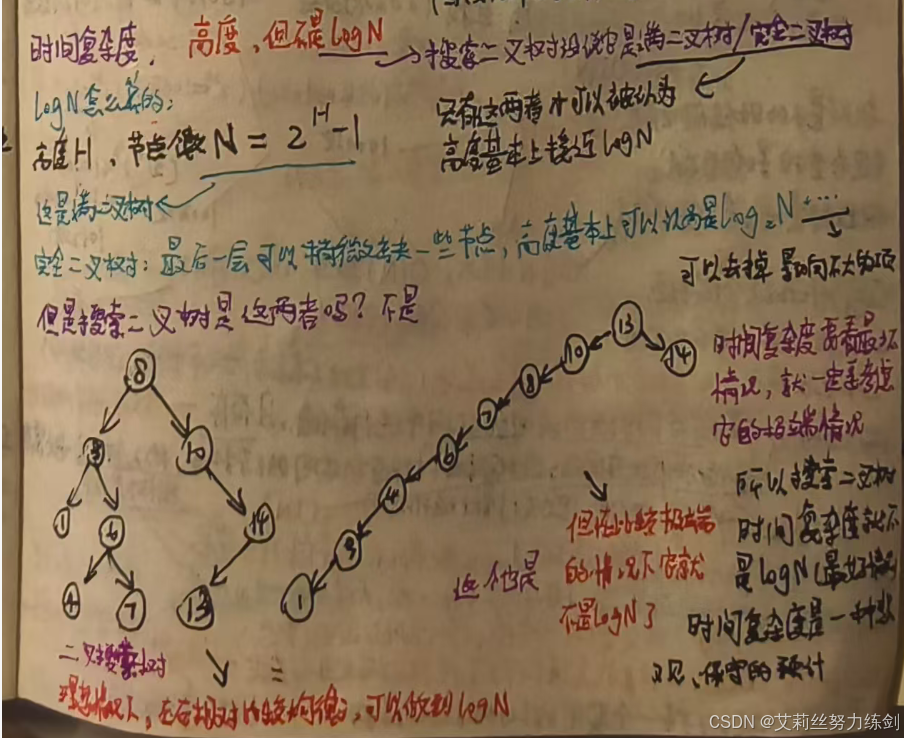 时间复杂度， 高度，但不是logN
搜索二义树没说它是满二叉树/完全二叉树
logN怎么算的：
只有这两者才可以被认为
高度基本上接近logN
高度H，节点个数N = 2^H-1
这是满二叉树
完全二叉树：最后一层可以稍微去掉一些节点，高度基本上可以认为是log₂N + ...
可以去掉 影响不大的项
但是搜索二叉树是这两者吗？不是
时间复杂度要看最坏
情况，就一定要考虑
它的极端情况
所以搜索二叉树
时间复杂度就不
是logN（最好情况）
时间复杂度是一种悲
观、保守的预计
8
3 10
1 6 14
4 7 13
13
10 14
8
7
6
4
3
1
这也是
但是比较极端
的情况下它就
不是logN了
二叉搜索树
理想情况下，左右相对比较均衡，可以做到logN
CSDN @艾莉丝努力练剑